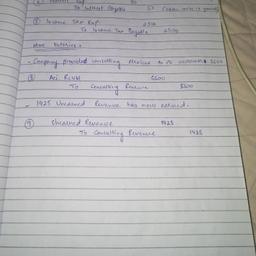 To Interest Payable 50
⑦ Income Tax Exp. 2500
To Income Tax Payable 2500
- Company provided consulting services to its customers $500
⑧ Acc. Rcvbl 5500
To Consulting Revenue 5500
- 1425 Unearned Revenue has now earned.
⑨ Unearned Revenue 1425
To Consulting Revenue 1425